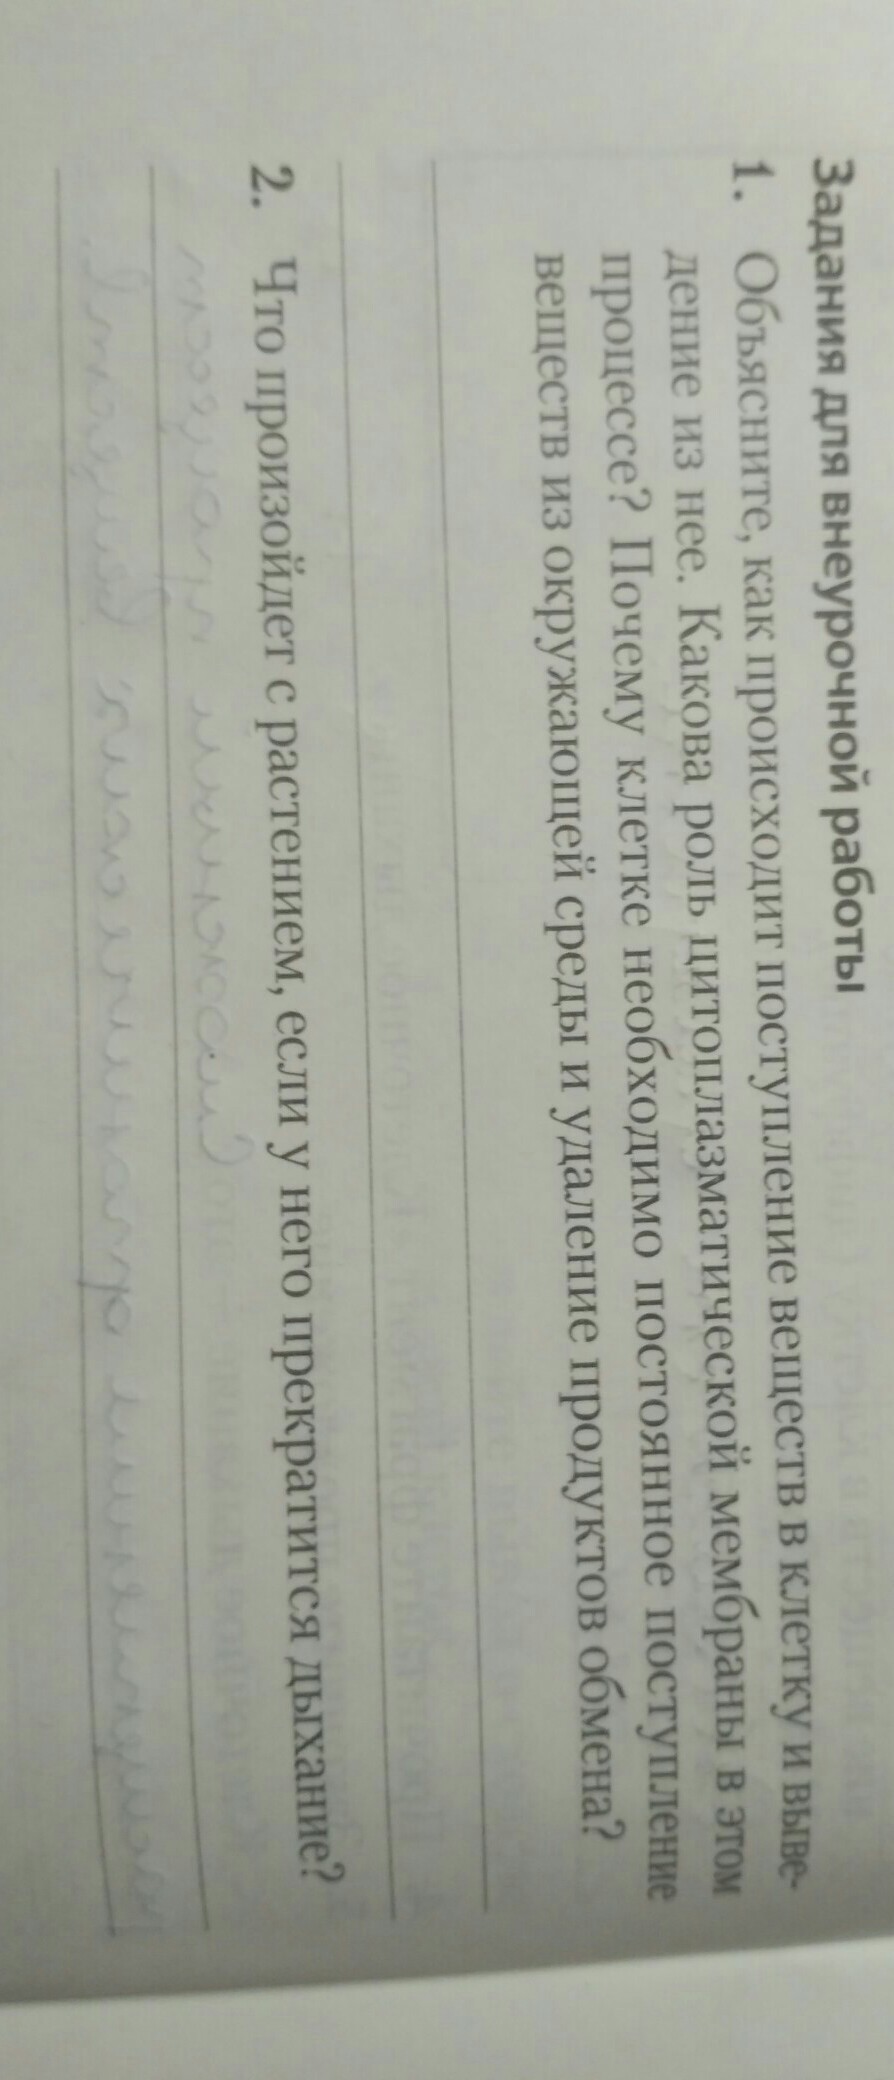 Задания для внеурочной работы
1. Объясните, как происходит поступление веществ в клетку и выве-
дение из нее. Какова роль цитоплазматической мембраны в этом
процессе? Почему клетке необходимо постоянное поступление
веществ из окружающей среды и удаление продуктов обмена?
2. Что произойдет с растением, если у него прекратится дыхание?